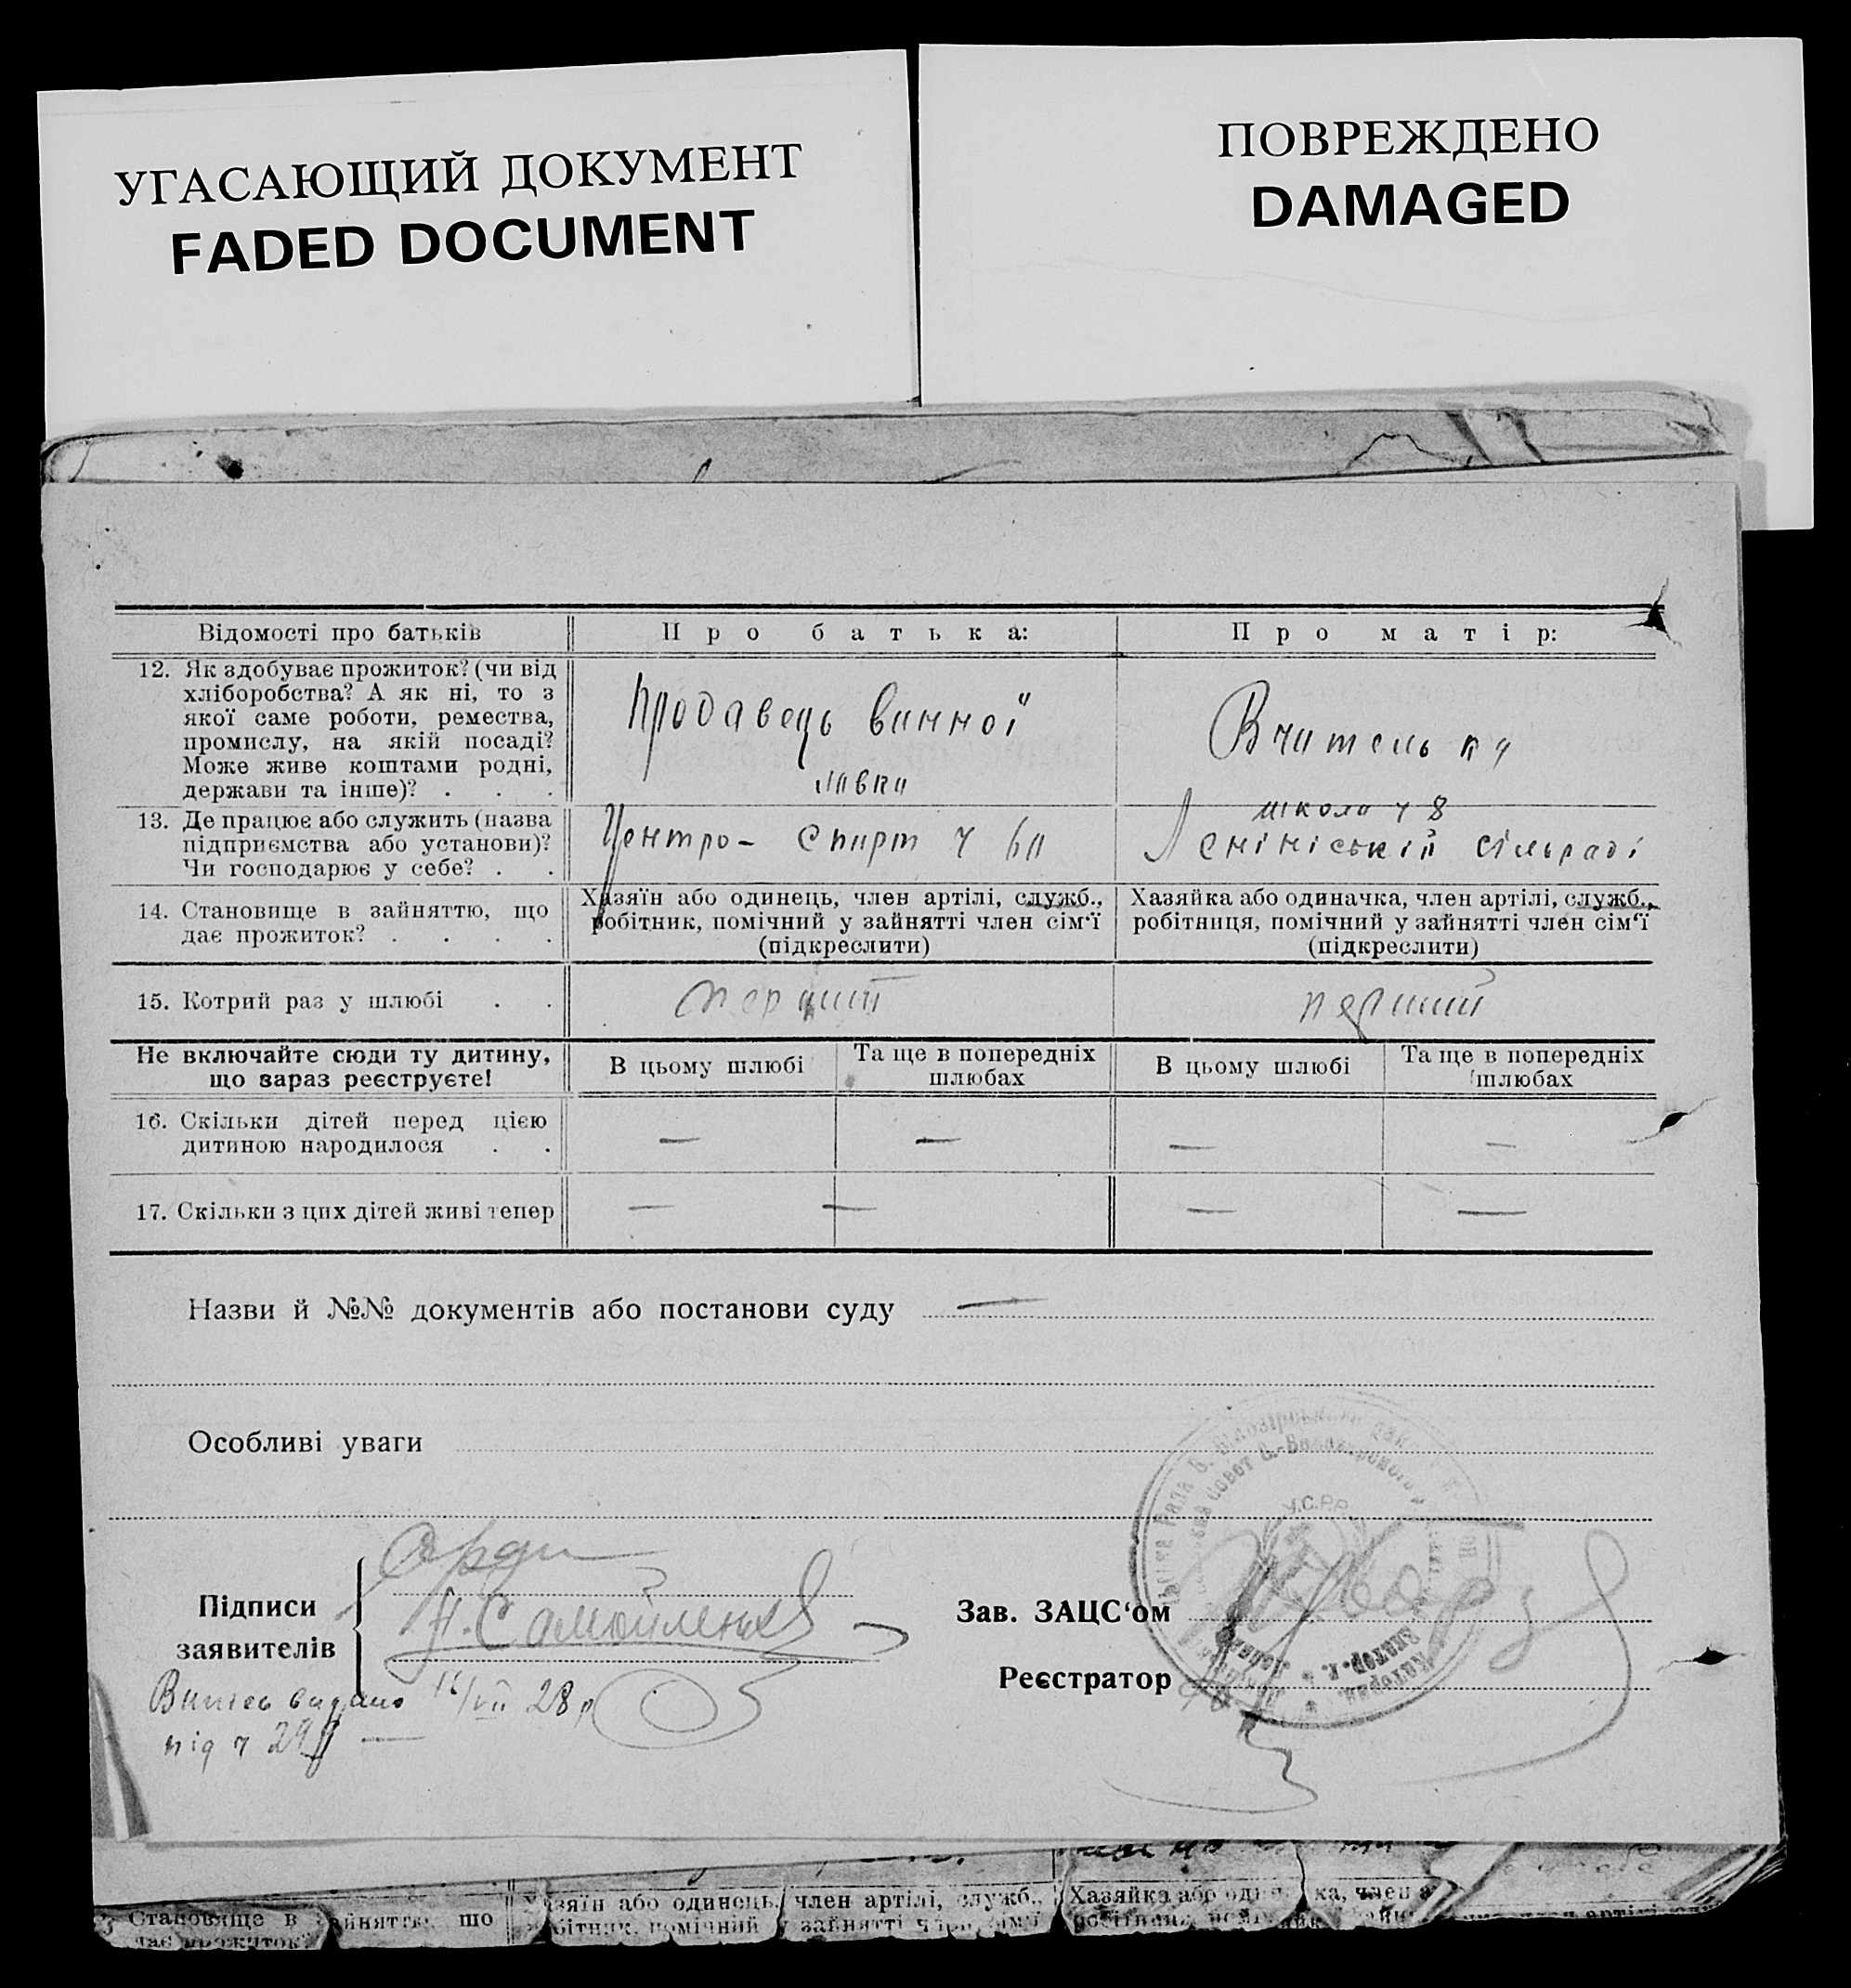 УГАСАЮЩИЙ ДОКУМЕНТ
FADED DOCUMENT
ПОВРЕЖДЕНО
DAMAGED
Відомості про батьків
Про батька:
Про матір:
12. Як здобуває прожиток? (чи від
хліборобства? А як ні, то з
якої саме роботи, ремества,
промислу, на якій посаді?
Може живе коштами родні,
держави та інше)? . . .
Продавець винної
лавки
Вчителька
13. Де працює або служить (назва
підприємства або установи)?
Чи господарює у себе? . .
Центро-Спирт ч
школа ч 8
Ленінській сільраді
14. Становище в зайняттю, що
дає прожиток? . . . .
Хазяїн або одинець, член артілі, служб.,
робітник, помічний у зайнятті член сім'ї
(підкреслити)
Хазяйка або одиначка, член артілі, служб.,
робітниця, помічний у зайнятті член сім'ї
(підкреслити)
15. Котрий раз у шлюбі . .
перший
перший
Не включайте сюди ту дитину,
що зараз реєструєте!
В цьому шлюбі
Та ще в попередніх
шлюбах
В цьому шлюбі
Та ще в попередніх
шлюбах
16. Скільки дітей перед цією
дитиною народилося . .
— — — —
17. Скільки з цих дітей живі тепер
— — — —
Назви й №№ документів або постанови суду —
Особливі уваги
У.С.Р.Р.
Підписи
заявителів
Н. Самойленко
Зав. ЗАЦС'ом
Реєстратор
Випись видано 16/VII 28 р
під ч
Становище в зайняттю, що
дає прожиток?
Хазяїн або одинець, член артілі, служб.,
робітник, помічний у зайнятті член сім'ї
Хазяйка або